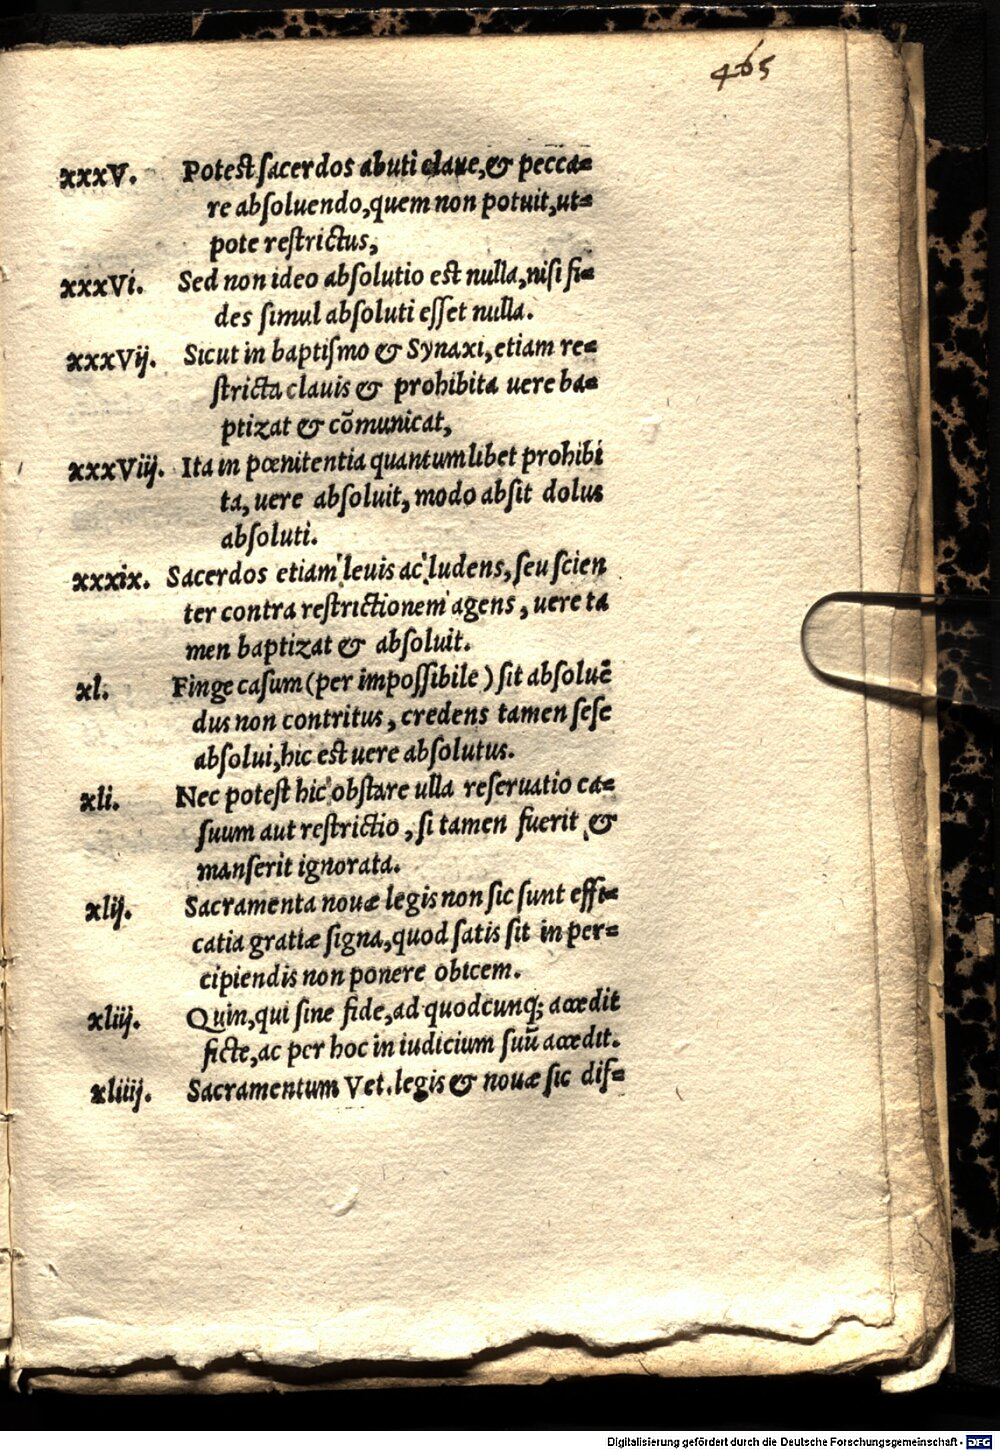 465
xxxV. Potest ſacerdos abuti claue,& pecca=
re abſoluendo,quem non potuit,ut=
pote reſtrictus,
xxxVi. Sed non ideo abſolutio est nulla,niſi fi=
des ſimul abſoluti eſſet nulla.
xxxVij. Sicut in baptiſmo & Synaxi,etiam re=
ſtricta clauis & prohibita uere ba=
ptizat & cōmunicat,
xxxViij. Ita in pœnitentia quantumlibet prohibi
ta, uere abſoluit, modo absit dolus
absoluti.
xxxix. Sacerdos etiam leuis ac ludens, ſeu ſcien
ter contra reſtrictionem agens, uere ta
men baptizat & abſoluit.
xl. Finge caſum (per impoſſibile) ſit abſoluē
dus non contritus, credens tamen ſeſe
abſolui,hic est uere abſolutus.
xli. Nec poteſt hic obſtare ulla reſeruatio ca=
ſuum aut reſtrictio, ſi tamen fuerit &
manſerit ignorata.
xlij. Sacramenta nouæ legis non ſic ſunt effi=
catia gratiæ ſigna,quod ſatis ſit in per=
cipiendis non ponere obicem.
xliij. Quin,qui ſine fide,ad quodcunq; accedit
ficte,ac per hoc in iudicium ſuū accedit.
xliiij. Sacramentum Vet.legis & nouæ ſic diſ=
Digitalisierung gefördert durch die Deutsche Forschungsgemeinschaft - DFG